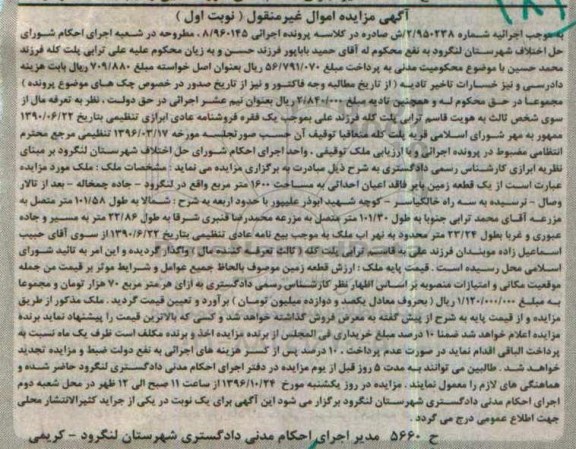 آگهی مزایده اموال غیرمنقول ( نوبت اول )
بموجب اجرائیه شماره ۲/۹۵۰۲۳۸/ش صادره در کلاسه پرونده اجرائی ۸/۹۶۰۱۴۵ . مطروحه در شعبه اجرای احکام شورای
حل اختلاف شهرستان لنگرود به نفع محکوم له آقای حمید باباپور فرزند حسن و به زیان محکوم علیه علی ترابی پلت کله فرزند
محمد حسین با موضوع محکومیت مدنی به پرداخت مبلغ ۵۶/۷۹۱/۰۷۰ ریال بعنوان اصل خواسته مبلغ ۷۰۹/۸۸۰ ریال بابت هزینه
دادرسی و نیز خسارات تاخیر تادیه ( از تاریخ مطالبه وجه فاکتور و نیز از تاریخ صدور در خصوص چک های موضوع پرونده )
مجموعا در حق محکوم له و همچنین تادیه مبلغ ۲/۸۴۰/۰۰۰ ریال بعنوان نیم عشر اجرائی در حق دولت . نظر به تعرفه مال از
سوی شخص ثالث به هویت قاسم ترابی پلت کله فرزند علی بموجب یک فقره فروشنامه عادی ابرازی تنظیمی بتاریخ ۱۳۹۰/۶/۲۲
ممهور به مهر شورای اسلامی قریه پلت کله متعاقبا توقیف آن حسب صورتجلسه مورخه ۱۳۹۶/۰۳/۱۷ تنظیمی مرجع محترم
انتظامی مضبوط در پرونده اجرائی و با ارزیابی ملک توقیفی . واحد اجرای احکام شورای حل اختلاف شهرستان لنگرود بر مبنای
نظریه ابرازی کارشناس رسمی دادگستری به شرح ذیل مبادرت به برگزاری مزایده می نماید : مشخصات ملک : ملک مورد مزایده
عبارت است از یک قطعه زمین بایر فاقد اعیان احداثی به مساحت ۱۶۰۰ متر مربع واقع در لنگرود - جاده چمخاله - بعد از تالار
وصال - نرسیده به سه راه خالکیاسر - کوچه شهید ابوذر علیپور با حدود اربعه به شرح : شمالا به طول ۱۰۱/۵۸ متر متصل به
مزرعه آقای محمد ترابی جنوبا به طول ۱۰۱/۳۰ متر متصل به مزرعه محمدرضا قنبری شرقا به طول ۲۲/۸۶ متر به مسیر و جاده
عبوری و غربا بطول ۲۳/۲۴ متر محدود به نهر آب ملک به موجب بیع نامه عادی تنظیمی بتاریخ ۱۳۹۰/۶/۲۲ از سوی آقای حبیب
اسماعیل زاده مویندان فرزند علی به قاسم ترابی پلت کله ( ثالث تعرفه کننده مال ) واگذار گردیده و این امر به تائید شورای
اسلامی محل رسیده است . قیمت پایه ملک : ارزش قطعه زمین موصوف بالحاظ جمیع عوامل و شرایط موثر بر قیمت من جمله
موقعیت مکانی و امتیازات منصوبه بر اساس اظهار نظر کارشناس رسمی دادگستری به ازای هر متر مربع ۷۰ هزار تومان و مجموعا
به مبلغ ۱/۱۲۰/۰۰۰/۰۰۰ ریال ( بحروف معادل یکصد و دوازده میلیون تومان ) برآورد و تعیین قیمت گردید . ملک مذکور از طریق
مزایده و از قیمت پایه به شرح از پیش گفته به معرض فروش گذاشته خواهد شد و کسی که بالاترین قیمت را پیشنهاد نماید برنده
مزایده اعلام خواهد شد ضمنا ۱۰ درصد مبلغ خریداری فی المجلس از برنده مزایده اخذ و برنده مکلف است ظرف یک ماه نسبت به
پرداخت الباقی اقدام نماید در صورت عدم پرداخت . ۱۰ درصد پس از کسر هزینه های اجرائی به نفع دولت ضبط و مزایده تجدید
خواهد شد . طالبین می توانند به مدت ۵ روز قبل از یوم مزایده در دفتر اجرای احکام مدنی دادگستری لنگرود حاضر شده و
هماهنگی های لازم را معمول نمایند . مزایده در روز یکشنبه مورخ ۱۳۹۶/۱۰/۲۴ از ساعت ۱۱ صبح الی ۱۲ ظهر در محل شعبه دوم
اجرای احکام مدنی دادگستری شهرستان لنگرود برگزار می شود این آگهی برای یک نوبت در یکی از جراید کثیرالانتشار محلی
جهت اطلاع عمومی درج می گردد .
ح ۵۶۶۰ مدیر اجرای احکام مدنی دادگستری شهرستان لنگرود - کریمی